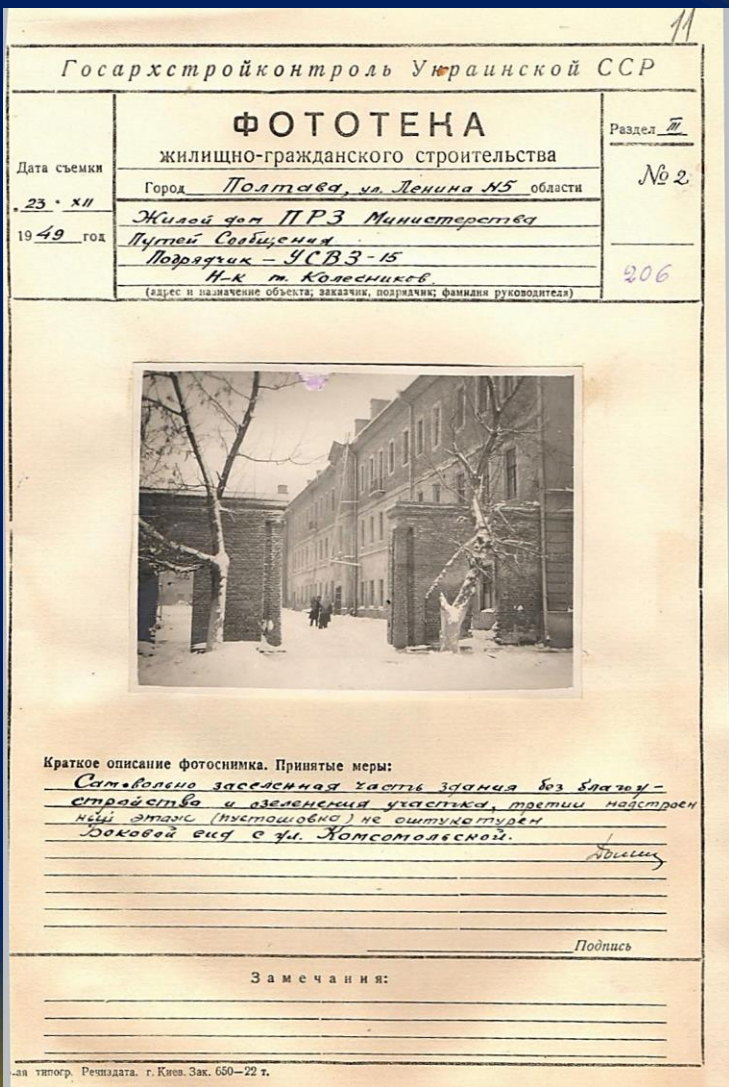 11
Госархстройконтроль Украинской ССР
Дата съемки
„23" XII
1949 год
ФОТОТЕКА
жилищно-гражданского строительства
Город Полтава, ул. Ленина №5 области
Жилой дом ПРЗ Министерства
Путей Сообщения
Подрядчик – УСВЗ-15
Н-к т. Колесников.
(адрес и назначение объекта; заказчик, подрядчик; фамилия руководителя)
Раздел III
№ 2
206
Краткое описание фотоснимка. Принятые меры:
Самовольно заселенная часть здания без благоу-
стройства и озеленения участка, третий надстроен
ный этаж (пустошовка) не оштукатурен
Боковой вид с ул. Комсомольской.
Подпись
Замечания:
типогр. Речиздата. г. Киев. Зак. 650—22 т.